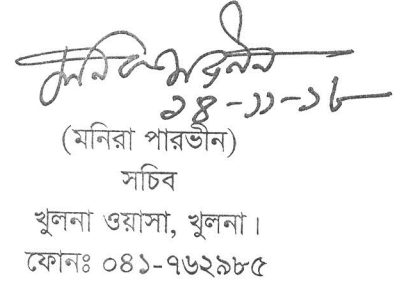 মনিরা পারভীন
১৪-১১-১৮
(মনিরা পারভীন)
সচিব
খুলনা ওয়াসা, খুলনা।
ফোনঃ ০৪১-৭৬২৯৮৫